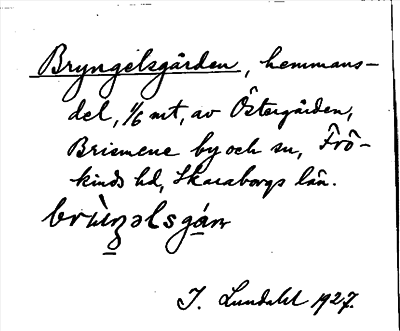 Bryngelsgården, hemmans-
del, 1/6 mt, av Östergården,
Brismene by och sn, Frö-
kinds hd, Skaraborgs län.
J. Lundahl 1927.